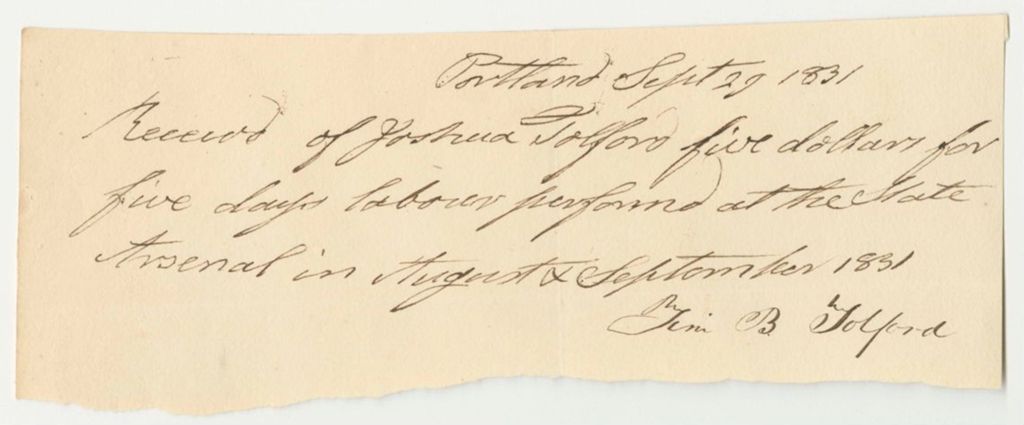 Portland Sept 29 1831
Receivd of Joshua Tolford five dollars for
five days labour performd at the State
Arsenal in August & September 1831
B Tolford